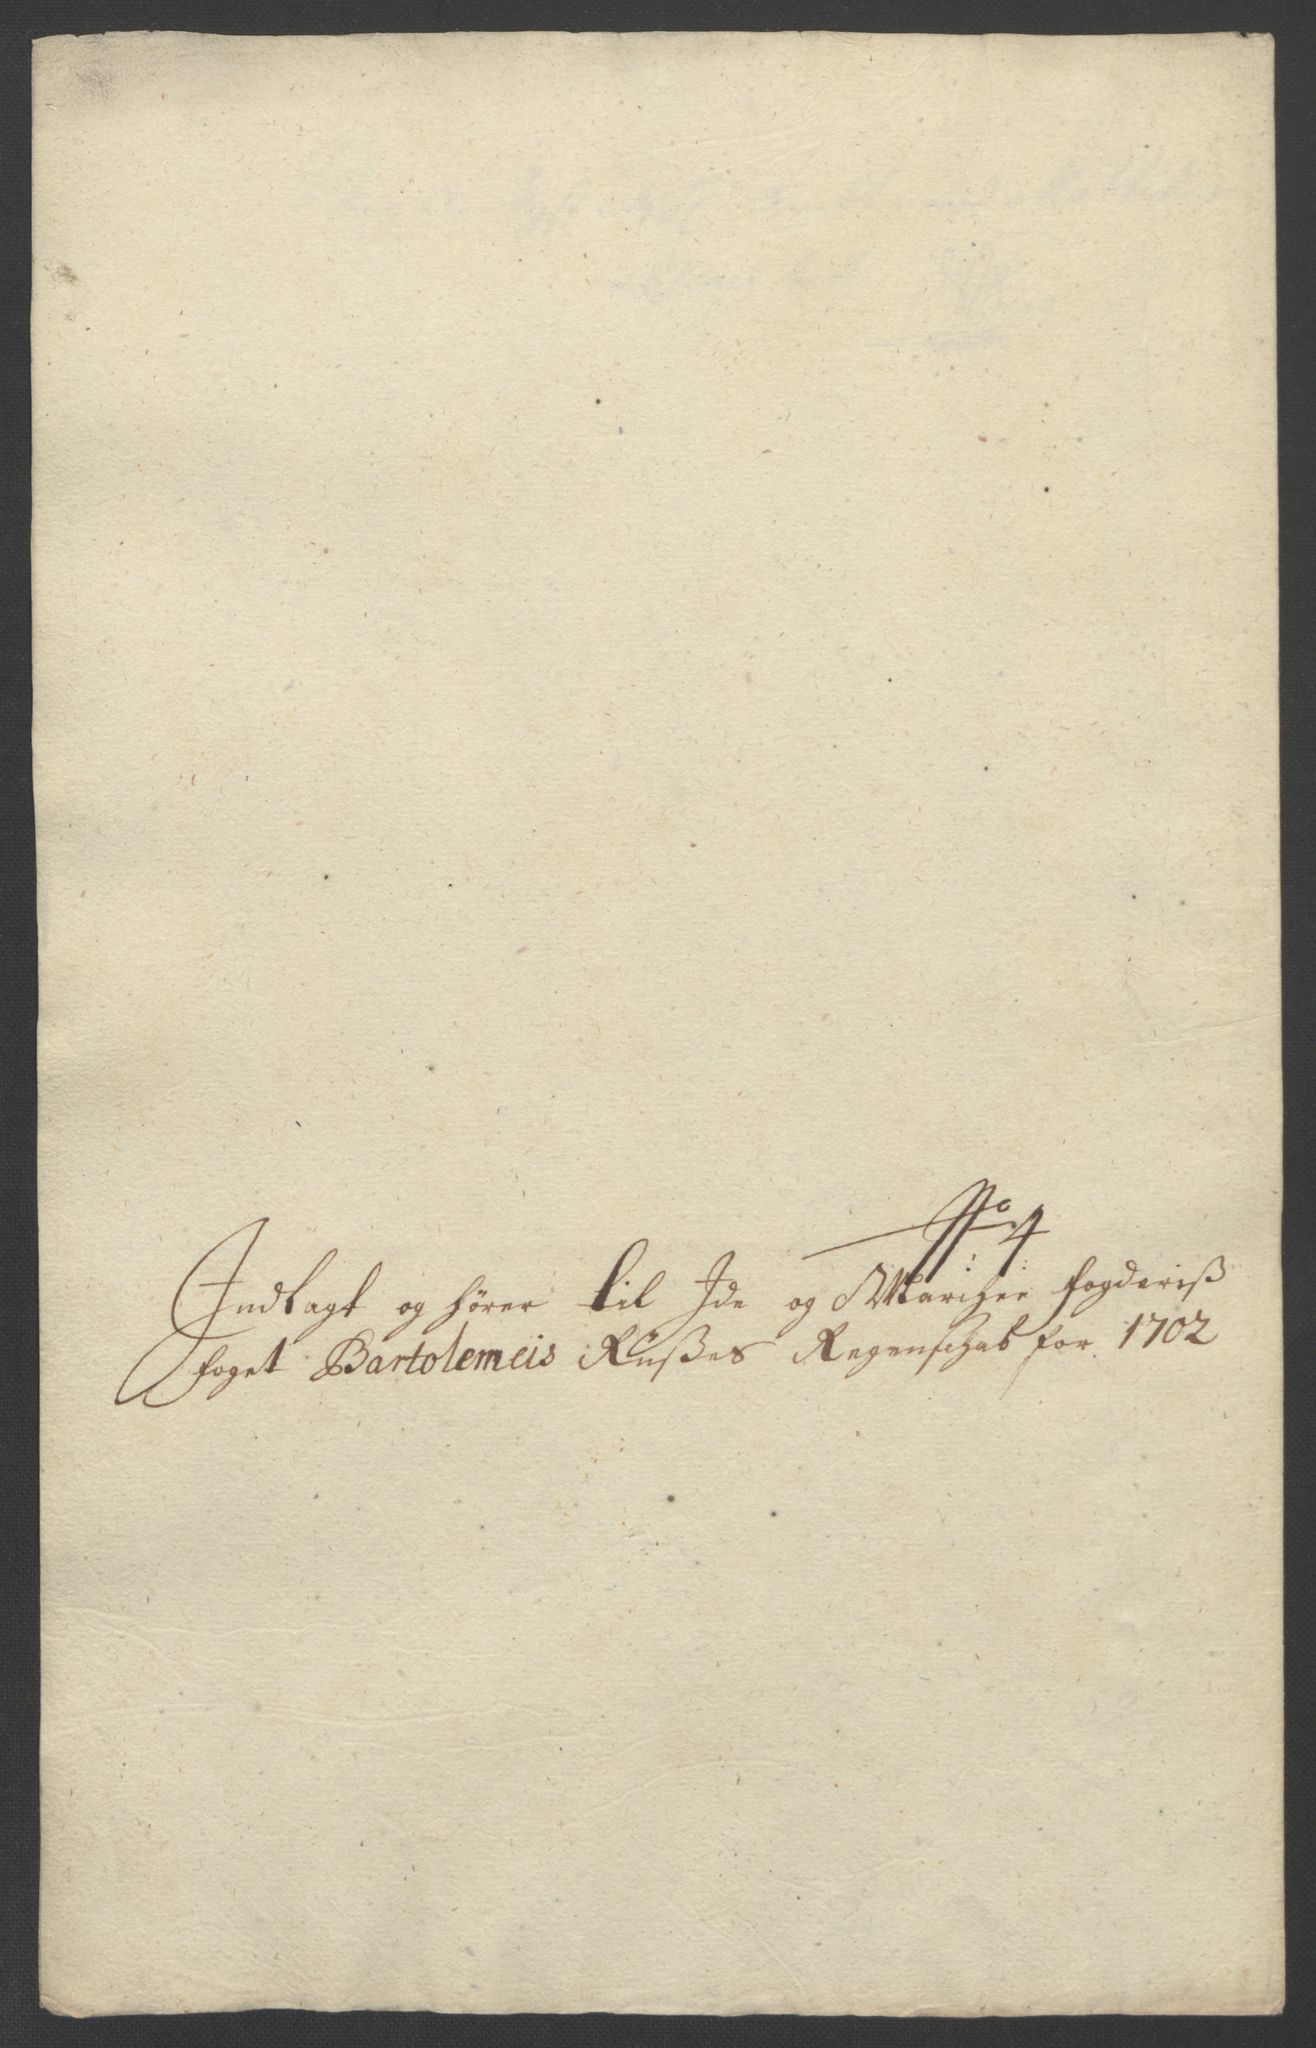 No 4
Indlagt og hører til Ide og Marchee fogderiß
foget Bartolemeis Rüßes Regenschab for 1702